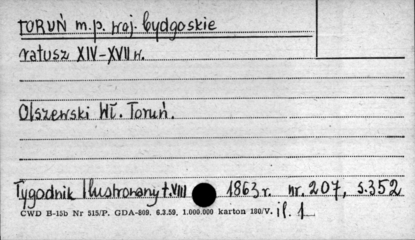 TORUŃ m.p. woj. bydgoskie
ratusz XIV-XVII w.
Olszewski Wł. Toruń.
Tygodnik Ilustrowany t.VIII 1863 r. nr. 207, s.352
CWD B-15b Nr 515/P. GDA-809. 6.3.59. 1.000.000 karton 180/V. il. 1